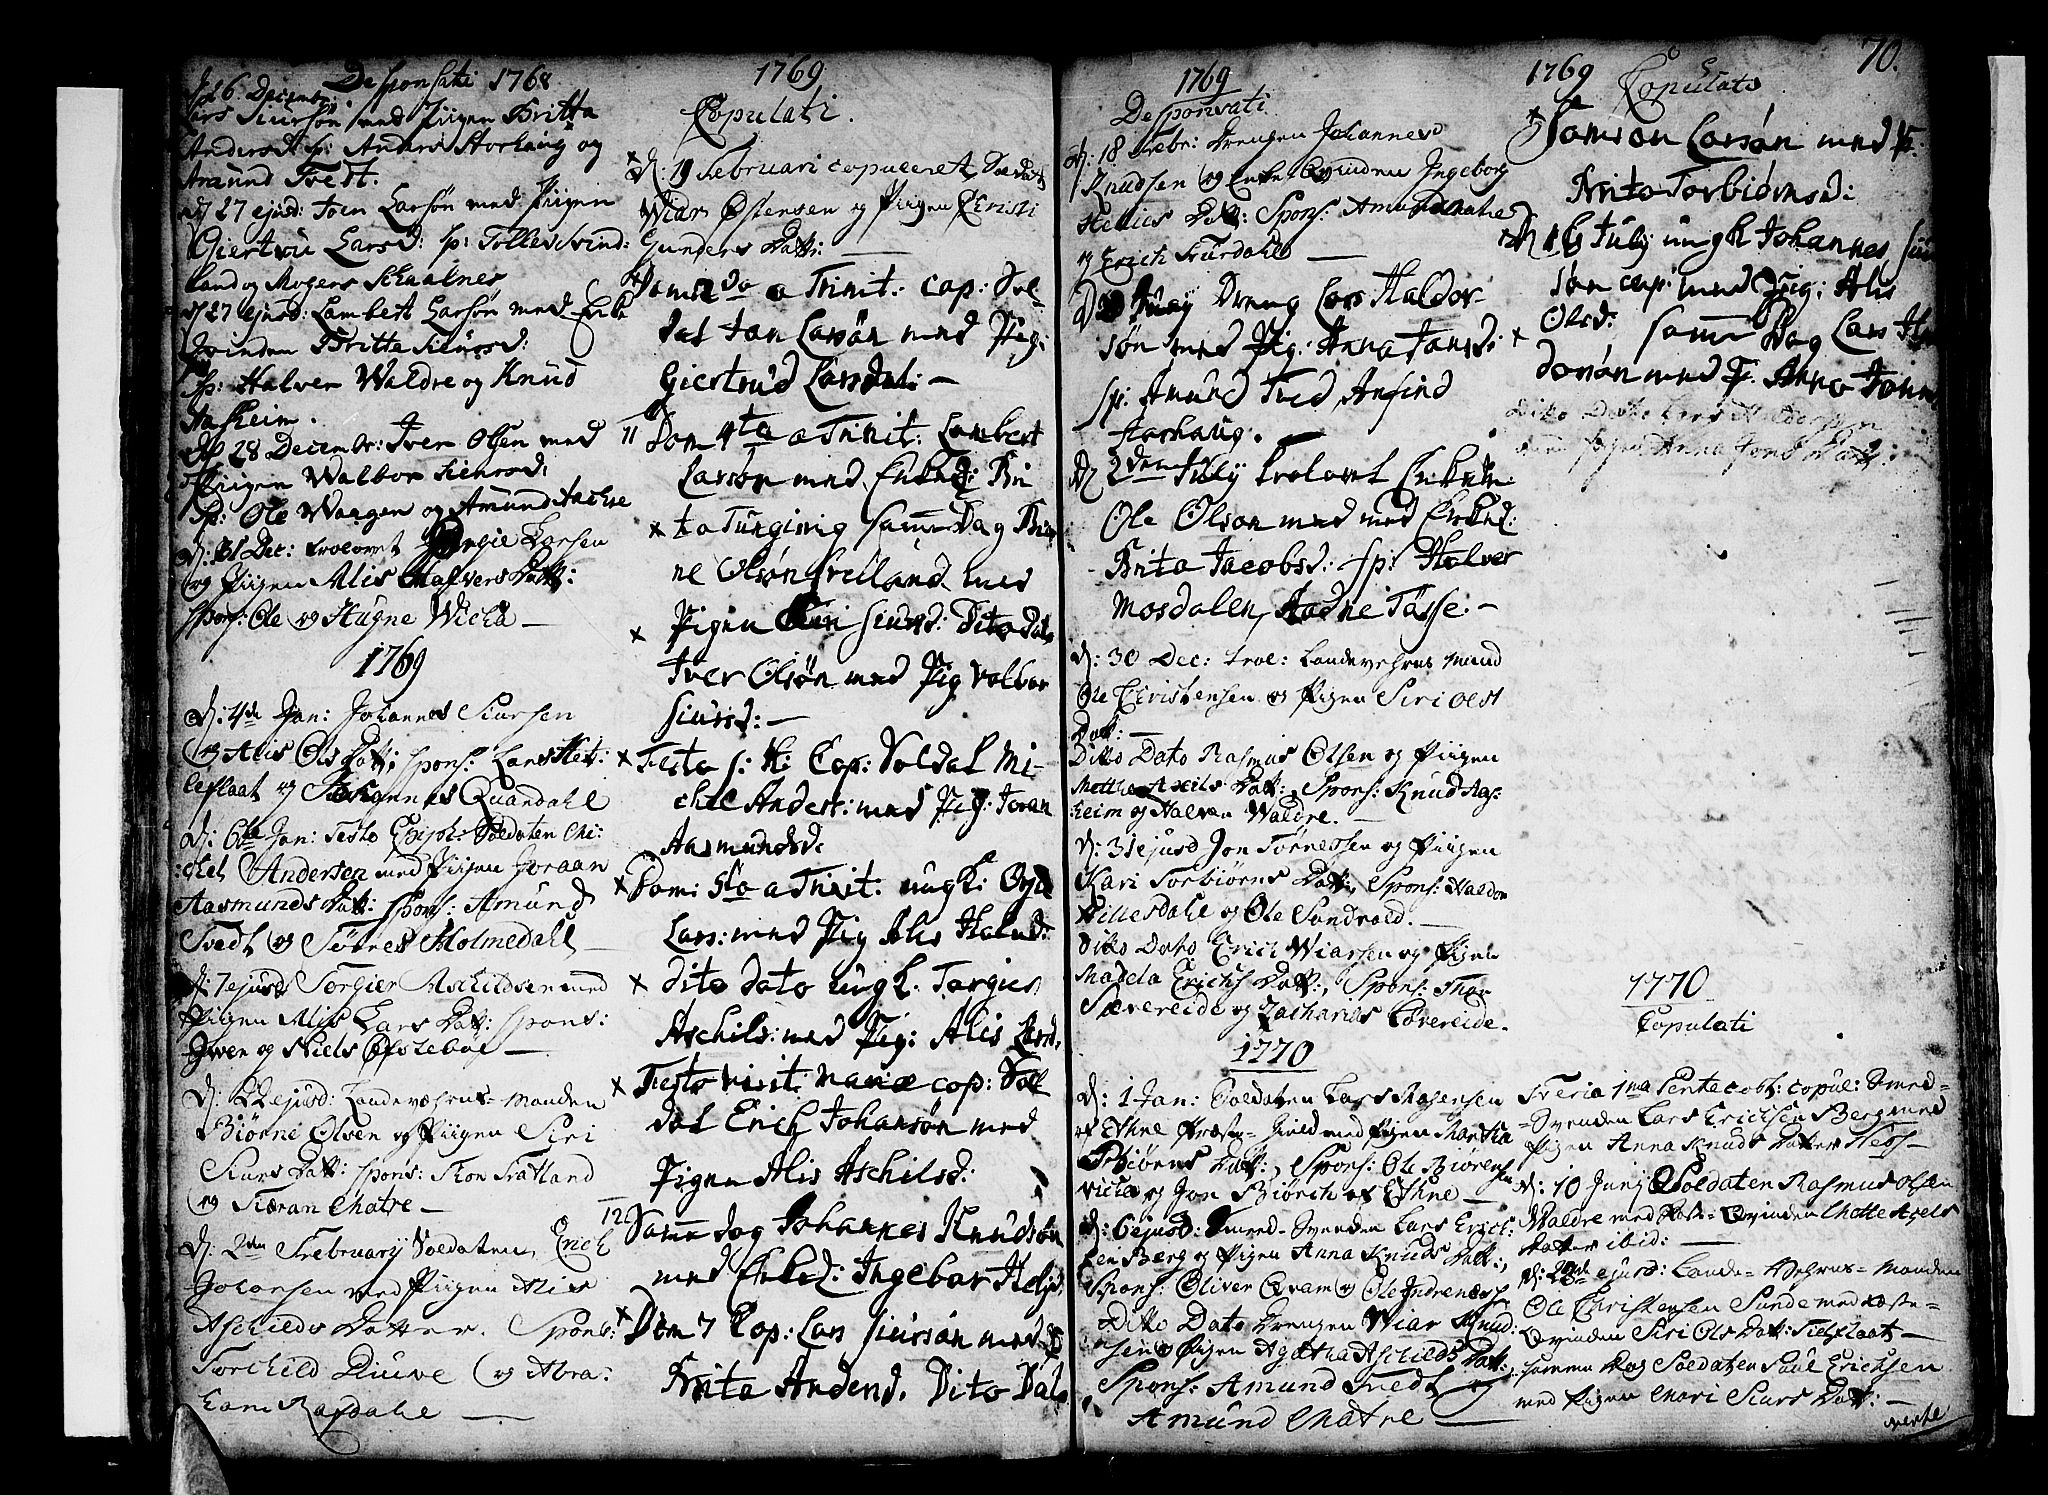 Desponsati 1768
d: 26 Decembr:
Lars Siursøn med Piigen Britta
Andersd: sp: Anders Storhaug og
Amund Tvedt.
d 27 ejusd: Joen Larsøn med Piigen
Giertru Larsd: sp: Tollev Svind:
land og Mogens Schaalnes
d 27 ejusd: Lambert Larsøn med Enke
Qvinden Britta Siursd:
sp: Halver Waldre og Knud
Aasheim.
d 28 Decembr: Iver Olsen med
Piigen Walbor Siursd:
sp: Ole Waagen og Amund
d: 31 Dec: trolovet Larsen
og Piigen Alis Halvers Datt:
spons: Ole og Haagne Wicha
1769
d: 4de Jan: Johannes Siursen
og Alis Ols Datt: spons: Lars
leflaat og Johannes Quandahl
d: 6te Jan: Festo Epiph: Soldaten Mi:
chel Andersen med Piigen Joraan
Aasmunds Datt: spons: Amund
Tvedt og Tørres Holmedahl
d: 7 ejusd Torgier Aschildsen med
Piigen Alis Lars Datt: spons:
Gwen og Niels Øfstebøe
d: 22 ejusd: Landeværns-Manden
Biørne Olsen og Piigen Siri
Siurs Datt: spons: Thon Frætland
og Siæran Matre
d: 2den February Soldaten Erich
Johansen med Piigen Alis
Aschilds Datter. Spons:
Torchild Diuve og Abra:
ham Rafdahl
1769
Copulati.
d: 19 Februari copuleret Soldat
Wiar Østensen og Piigen Christi
Gunders Datt:
Dom 2do a Trinit: cop: Sol-
dat Jan Larsøn med Pig:
Giertrud Larsdat:
11 Dom 4ta a Trinit: Lambert
Larsøn med Enked: Bri
ta samme Dag Biør
ne Olsøn med
Pigen Siri Siursd: Dito Dato
Iver Olsøn med Pig Valbor
Siursd:
Festo S: H: Cop: Soldat Mi-
chel Anders: med Pig: Joran
Aasmundsd.
Dom: 5to a Trinit: ungk:
Lars: med Pig Alis Halvd:
dito dato ungk. Torgier
Aschils: med Pig: Alis Larsd.
Festo visit: Mariæ cop: Sol
dat Erich Johansøn med
Pigen Alis Aschilsd:
12 Samme dag Johannes Knudsøn
med Enked: Ingebor Helje:
Dom 7 Cop: Lars Siursøn med P
Brita Andersd. Dito Dato
1769
Desponsati
d: 18 Febr: Drengen Johannes
Knudsen og Enke Qvinden Ingeborg
Helies Datt: Spons: Amund Mahle
og Erich Fiurdahl
Dreng Lars Haldor-
søn med Pig: Anna Jansd:
sp: Amund Tved, Anfind
Aarhaug.
d 2den July trolovet Enkem:
Ole Olsøn med med Enked:
Brita Jacobsd: sp: Halver
Mosdalen, Aadne Tasse:
d: 30 Dec: trol: Landeværns Mand
Ole Christensen og Pigen Siri Oels
Datt:
Ditto Dato Rasmus Olsen og Piigen
Axels Datt: Spons: Knud Aas:
heim og Halver Waldre.
d: 31 ejusd Jon Tørressen og Piigen
Kari Torbiørns Datt: Spons: Haldor
Lillesdahl og Ole Sandvold.
Ditto Dato Erich Wiarsen og Pigen
Madela Erichs Datt: Spons: Thor
Sævereide og Zacharias Løvereide.
1770
d: 1 Jan: Soldaten Lars Mogensen
af Ethne Præste-Gield med Pigen Martha
Biørns Datt: Spons: Ole Biørensen
Wicha og Jon Biørch af Ethne
d: 6 ejusd: Smed-Svenden Lars Erich:
sen Berg og Pigen Anna Knuds Datt:,
Spons: Oliver Qvam og Ole Indrenæss
Ditto Dato Drengen Wiar Knud:
sen og Pigen Agatha Aschilds Datt:,
Spons: Amund Tvedt og
Amund Matre
70.
1769
Copulati
Samson Larsøn med P:
Brita Torbiørnsd:
d 16 July ungk Johannes Siur
søn cop: med Pig: Alis
Olsd: samme Dag Lars Hal
dorsøn med P. Anna Jonsd
Ditto Dato Lars Haldorsen
med Pigen Anna Jons Datt:
1770
Copulati
Feria 1ma Pentecost: copul: Smed-
Svenden Lars Erichsen Berg med
Pigen Anna Knuds Datter
d: 10 Junj Soldaten Rasmus Olsen
Waldre med Fæste-Qvinden Axels
Datter ibid:
ejusd: Lande-Værns-Manden
Ole Christensen Sunde med Fæste-
Qvinden Siri Ols Datt:
samme Dag Soldaten Poul Erichsen
med Pigen Mari Siurs Datt:
verte